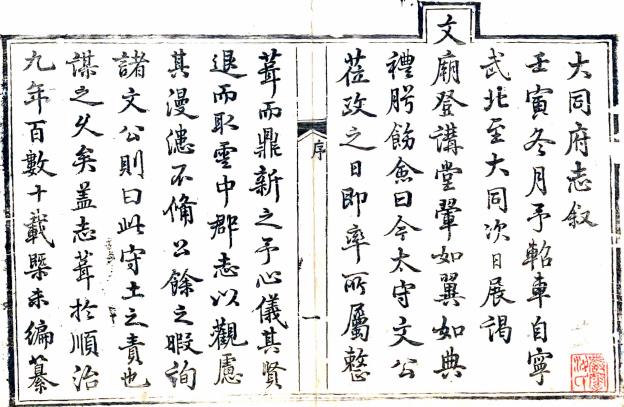 大同府志叙
壬寅冬月予軺車自寧
武北至大同次日展謁
文廟登講堂翬如翼如典
禮胥飭僉曰今太守文公
莅政之日即率所屬整
序
一
葺而鼎新之予心儀其賢
退而取雲中郡志以觀慮
其漫漶不偹公餘之暇詢
諸文公則曰此守土之責也
謀之久矣盖志葺於順治
九年百數十載槩未編纂